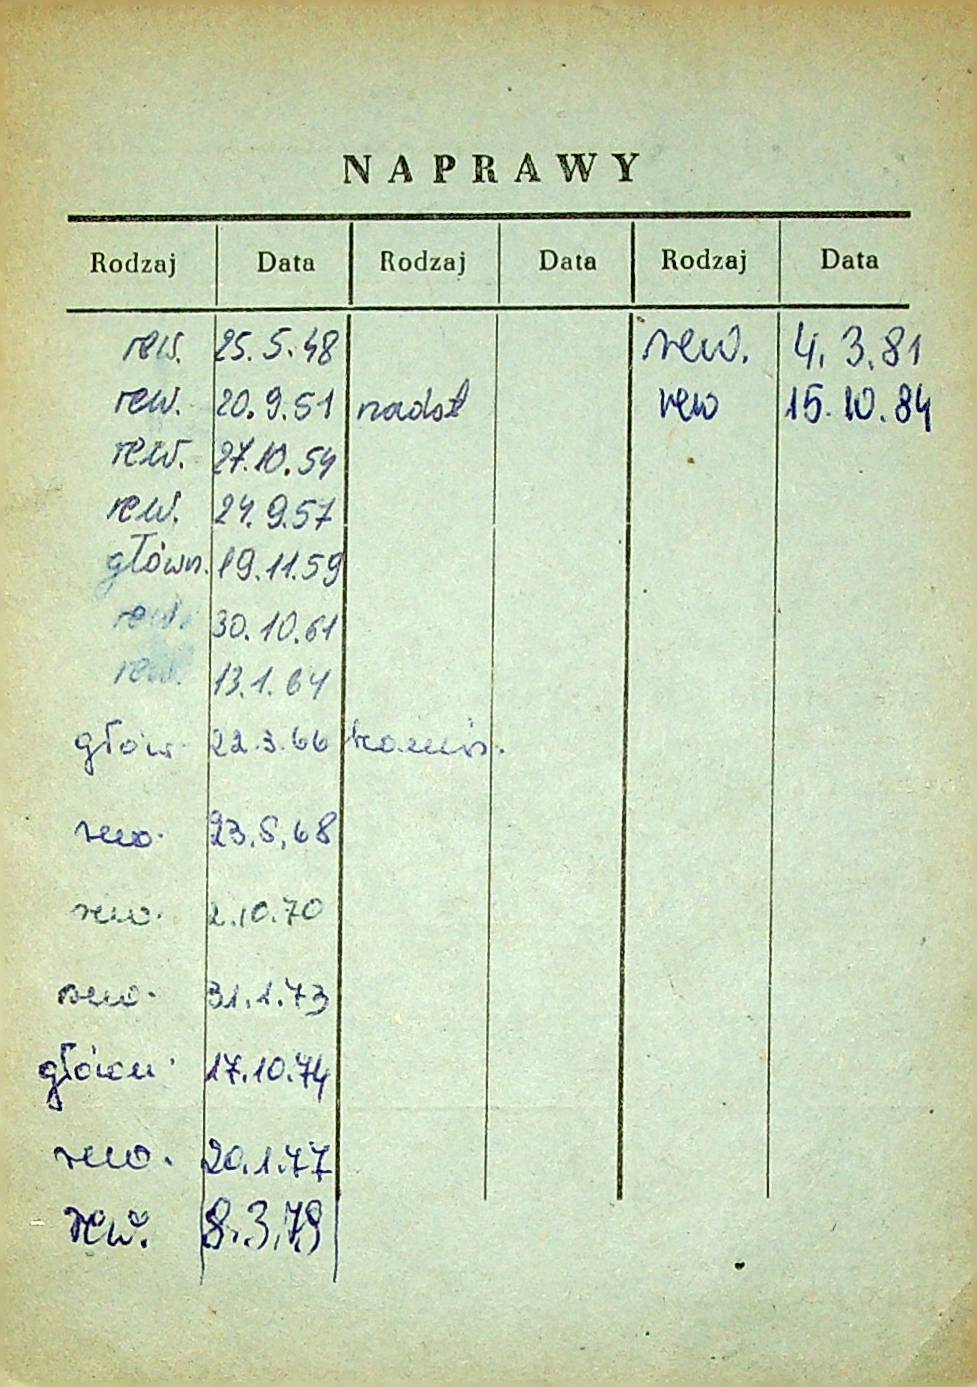 NAPRAWY
Rodzaj Data Rodzaj Data Rodzaj Data
rew. 25.5.48 rew. 4.3.81
rew. 20.9.51 nadst rew 15.10.84
rew. 27.10.54
rew. 24.9.57
główn. 19.11.59
rew. 30.10.61
rew. 13.1.64
głów. 22.3.66
rew. 23.5.68
rew. 2.10.70
rew. 31.1.73
główn. 17.10.74
rew. 20.1.77
rew. 8.3.79